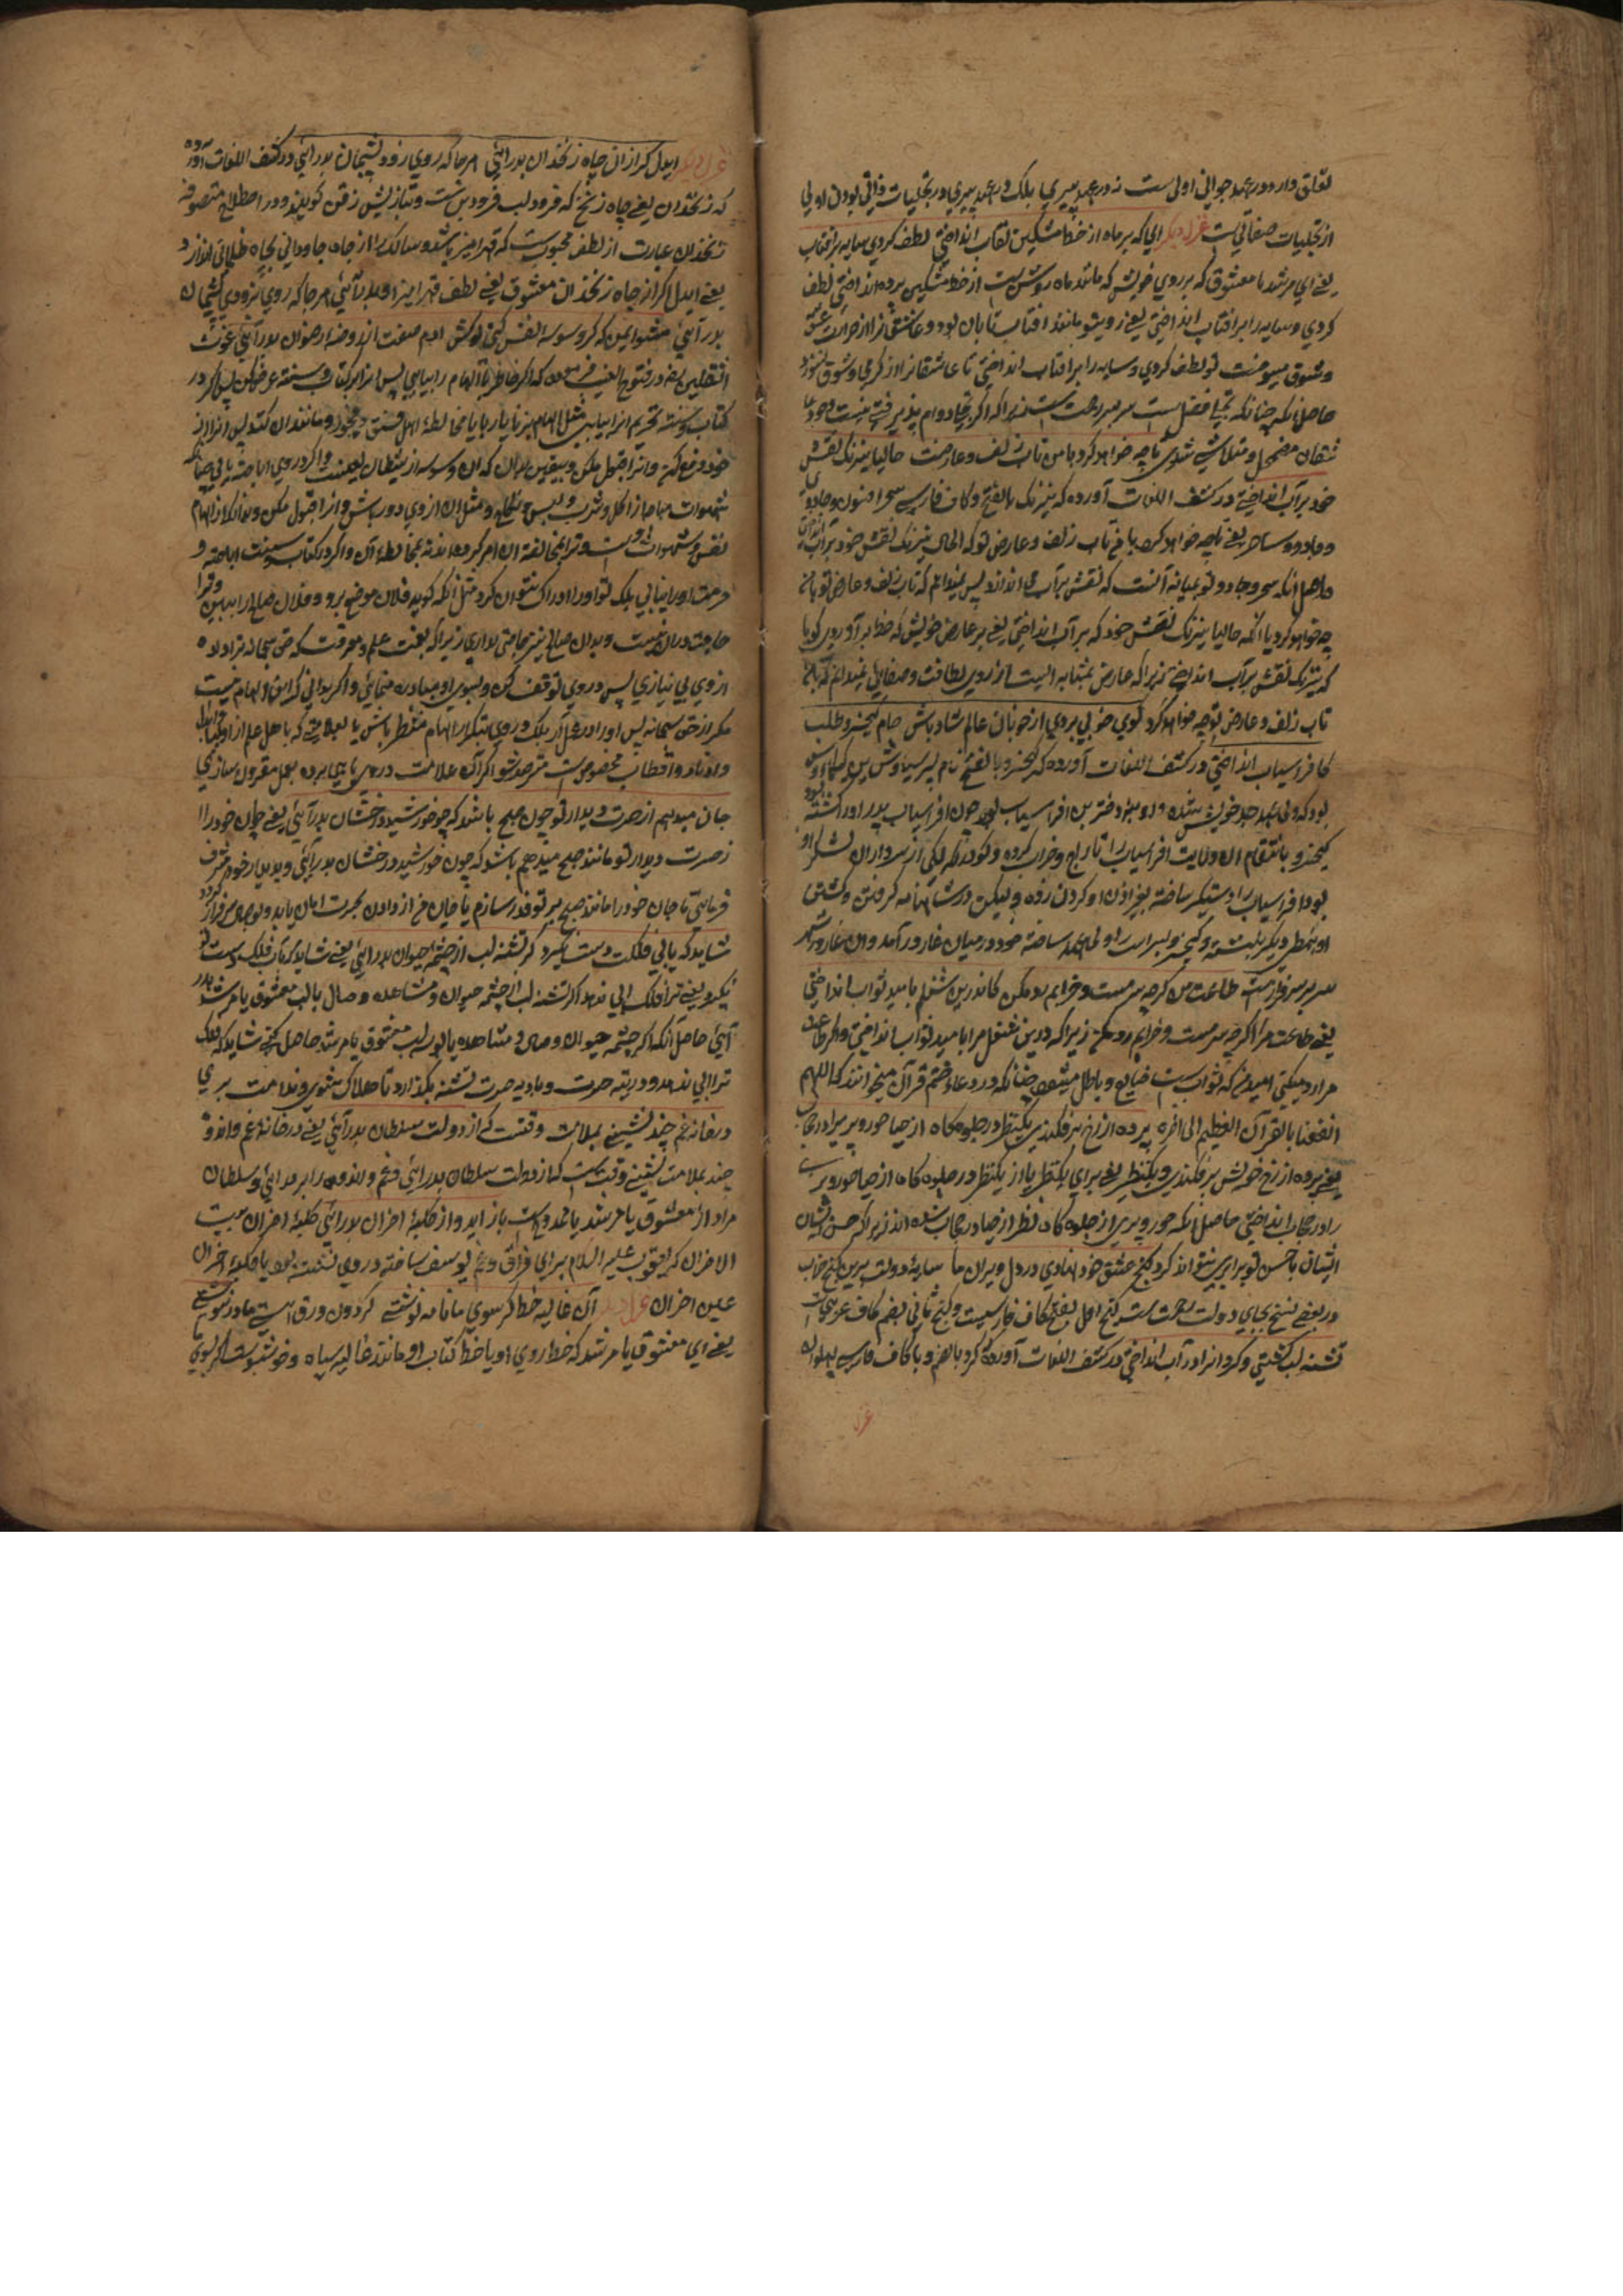 تعلق دارد و در عهد جوانی اولی ست نه در عهد پیری بلکه در عهد پیری در تجلیات ذاتی بودن اولی
از تجلیات صفاتی ست غزل دیگر ای که بر ماه از خط مشکین نقاب انداختی لطف کردی سایه بر آفتاب
یعنی ای مرشد یا معشوق که بر روی خویش که مانند ماه روشن ست از خط مشکین پرده انداختی لطف
کردی و سایه را بر آفتاب انداختی یعنی رویت مانند آفتاب تابان بود و عاشقانرا از حرارت عشق
و شوق میسوخت تو لطف کردی و سایه را بر آفتاب انداختی تا عاشقانرا از گرمی و شوق نسوزد
حاصل آنکه چنانکه تجلی فضل ست سر بسر رحمت ست زیرا که اگر تجلی دوام پذیرفتی هستی وجود
شان مضمحل و متلاشی شدی تا چه خواهد کرد با من تاب زلف و عارضت حالیا نیرنگ نقش
خود بر آب انداختی در کشف اللغات آورده که نیرنگ بالفتح و کاف فارسی سحر و افسون و جادو
و جادو و ساحر یعنی تا چه خواهد کرد با من تاب زلف و عارض تو که الحال نیرنگ نقش خود بر آب
حاصل آنکه سحر و جادو تو بمثابه آنست که نقش بر آب می اندازد پس نمیدانم که تاب زلف و عارض تو با من
چه خواهد کرد یا آنکه حالیا نیرنگ نقش خود که بر آب انداختی یعنی بر عارض خویش که خط بر آوردی گویا
که نیرنگ نقش بر آب انداختی زیرا که عارض بمثابه آبست از روی لطافت و صفایی نمیدانم که با من
تاب زلف و عارض تو چه خواهد کرد گوی خوبی بردی از خوبان عالم شاد باش جام کیخسرو طلب
کافراسیاب انداختی در کشف اللغات آورده که کیخسرو بالفتح نام پسر سیاوش بن کیکاوس
بود که ولی عهد جد خویش شده و او نیز دختر بن افراسیاب بود چون افراسیاب پدر او را کشته
کیخسرو بانتقام آن ولایت افراسیاب را تاراج و خراب کرده و گودرز که یکی از سرداران لشکر او
بود افراسیاب را دستگیر ساخته بغیر اذن او گردن زده و لیکن در شاهنامه گرفتن و کشتن
او بنمطی دیگر نبشته و کیخسرو لهراسب را ولی عهد ساخته خود در میان غار در آمد و آن غار در شهر
طاعت من گرچه سرمست و خرابم رد مکن کاندرین شغلم بامید ثواب انداختی
یعنی طاعت مرا اگرچه سرمست و خرابم رد مکن زیرا که درین شغل مرا بامید ثواب انداختی و اگر طاعت
مرا رد میکنی امید من که ثواب ست ضایع و باطل میشود چنانکه در دعاء ختم قرآن میخوانند که اللهم
انفعنا بالقرآن العظیم الی آخره پرده از رخ بر فکندی یکنظر در جلوه گاه از حیا حور و پری را در حجاب
یعنی پرده از رخ خویش بر فکندی و یکنظر یعنی برای یکنظر یا از یکنظر در جلوه گاه از حیا حور و پری
را در حجاب انداختی حاصل آنکه حور و پری از جلوه گاه نظر از حیا در حجاب شده اند زیرا که حسن ایشان
ایشان با حسن تو برابری نتواند کرد گنج عشق خود نهادی در دل ویران ما سایه دولت برین کنج خراب
در بعضی نسخ بجای دولت رحمت ست گنج اول بفتح کاف فارسیست و کنج ثانی بضم کاف عربی
تشنه لب کشتی و گردانرا در آب انداختی در کشف اللغات آورده که گرد بالضم و با کاف فارسی پهلوان
غزل
غزل دیگر ایدل گر از آن چاه زنخدان بدر آیی هر جا که روی زود پشیمان بدر آیی در کشف اللغات آورده
که زنخدان یعنی چاه زنخ که فرود لب فرودین ست و بتازیش ذقن گویند و در اصطلاح متصوفه
زنخدان عبارت از لطف محبوبست که قهر آمیز باشد و سالک را از جاه جاودانی بچاه ظلمانی اندازد
یعنی ایدل اگر از چاه زنخدان معشوق یعنی لطف قهر آمیز او بدر آیی هر جا که روی بزودی پشیمان
بدر آیی هشدار که گر وسوسه نفس کنی گوش آدم صفت از روضه رضوان بدر آیی غوث
الثقلین در فتوح الغیب فرموده که اگر خاطر یا الهام را بیابی پس آنرا بر کتاب و سنت عرض کن پس اگر در
کتاب و سنت تحریم آنرا بیابی مثل الهام بزنا یا ربا یا مخالطه اهل فسق و فجور و مانند آن کند پس آنرا از
خود دفع کن و آنرا قبول مکن و بیقین بدان که آن وسوسه از شیطان لعینست و اگر در وی اباحت یابی چنانکه
شهوات مباحه از اکل و شرب و لبس و نکاح و مثل آن از وی دور باش و آنرا قبول مکن و بدانکه آن الهام
نفس و شهوات اوست و ترا بمخالفت آن امر کرده اند نه بمخالطه آن و اگر در کتاب و سنت اباحت و
حرمت او را نیابی بلکه تو او را ادراک نتوان کرد مثل آنکه گوید فلان موضع برو و فلان صالح را ببین و ترا
حاجت در آن نیست و بدان صالح نیز حاجتی نداری زیرا که بعنایت علم و معرفت که حق سبحانه ترا داده
از وی بی نیازی پس در وی توقف کن و بسوی او مبادرت منمای و اگر بدانی که این الهام نیست
مگر از حق سبحانه پس او را در عمل آر بلکه در وی بتکرار الهام منتظر باش یا بعلامتی که باهل علم از اولیا
و اوتاد و اقطاب مخصوص ست مترصد شو اگر آن علامت در وی یابی به عمل مقرون سازی
جان میدهم از حسرت دیدار تو چون صبح باشد که چو خورشید درخشان بدر آیی یعنی جان خود را
از حسرت دیدار تو مانند صبح میدهم باشد که چون خورشید درخشان بدر آیی و بدیدار خود مشرف
فرمایی تا جان خود را مانند صبح بر تو فدا سازم یا جان من از دادن بحسرت امان یابد و بوصال سرفراز گردد
شاید که بآبی فلکت دست نگیرد گر تشنه لب از چشمه حیوان بدر آیی یعنی شاید که بآب فلک دست تو
نگیرد یعنی ترا فلک آبی ندهد اگر تشنه لب از چشمه حیوان و مشاهده وصال یا لب معشوق یا مرشد بدر
آیی حاصل آنکه اگر چشمه حیوان وصال و مشاهده یا بوسه لب معشوق یا مرشد حاصل نکنی شاید که فلک
ترا آبی ندهد و در تیه حسرت و بادیه حسرت تشنه بگذارد تا هلاک شوی و ندامت بری
در خانه غم چند نشینی بملامت وقتست که از دولت سلطان بدر آیی یعنی در خانه غم و اندوه
چند بملامت نشینی وقت ست که از دولت سلطان بدر آیی و غم و اندوه را بدر آیی و سلطان
مراد از معشوق یا مرشد یا ممدوح ست باز آید و از کلبه احزان بدر آیی کلبه احزان بیت
الاحزان که یعقوب علیه السلام برای فراق و غم یوسف ساخته در وی نشسته بود یا کلبه احزان
عین احزان غزل دیگر آن غالیه خط گر سوی ما نامه نوشتی گردون ورق هستی ما در ننوشتی
یعنی ای معشوق یا مرشد که خط روی او یا خط کتاب او مانند غالیه سیاه و خوشبوست اگر بسوی